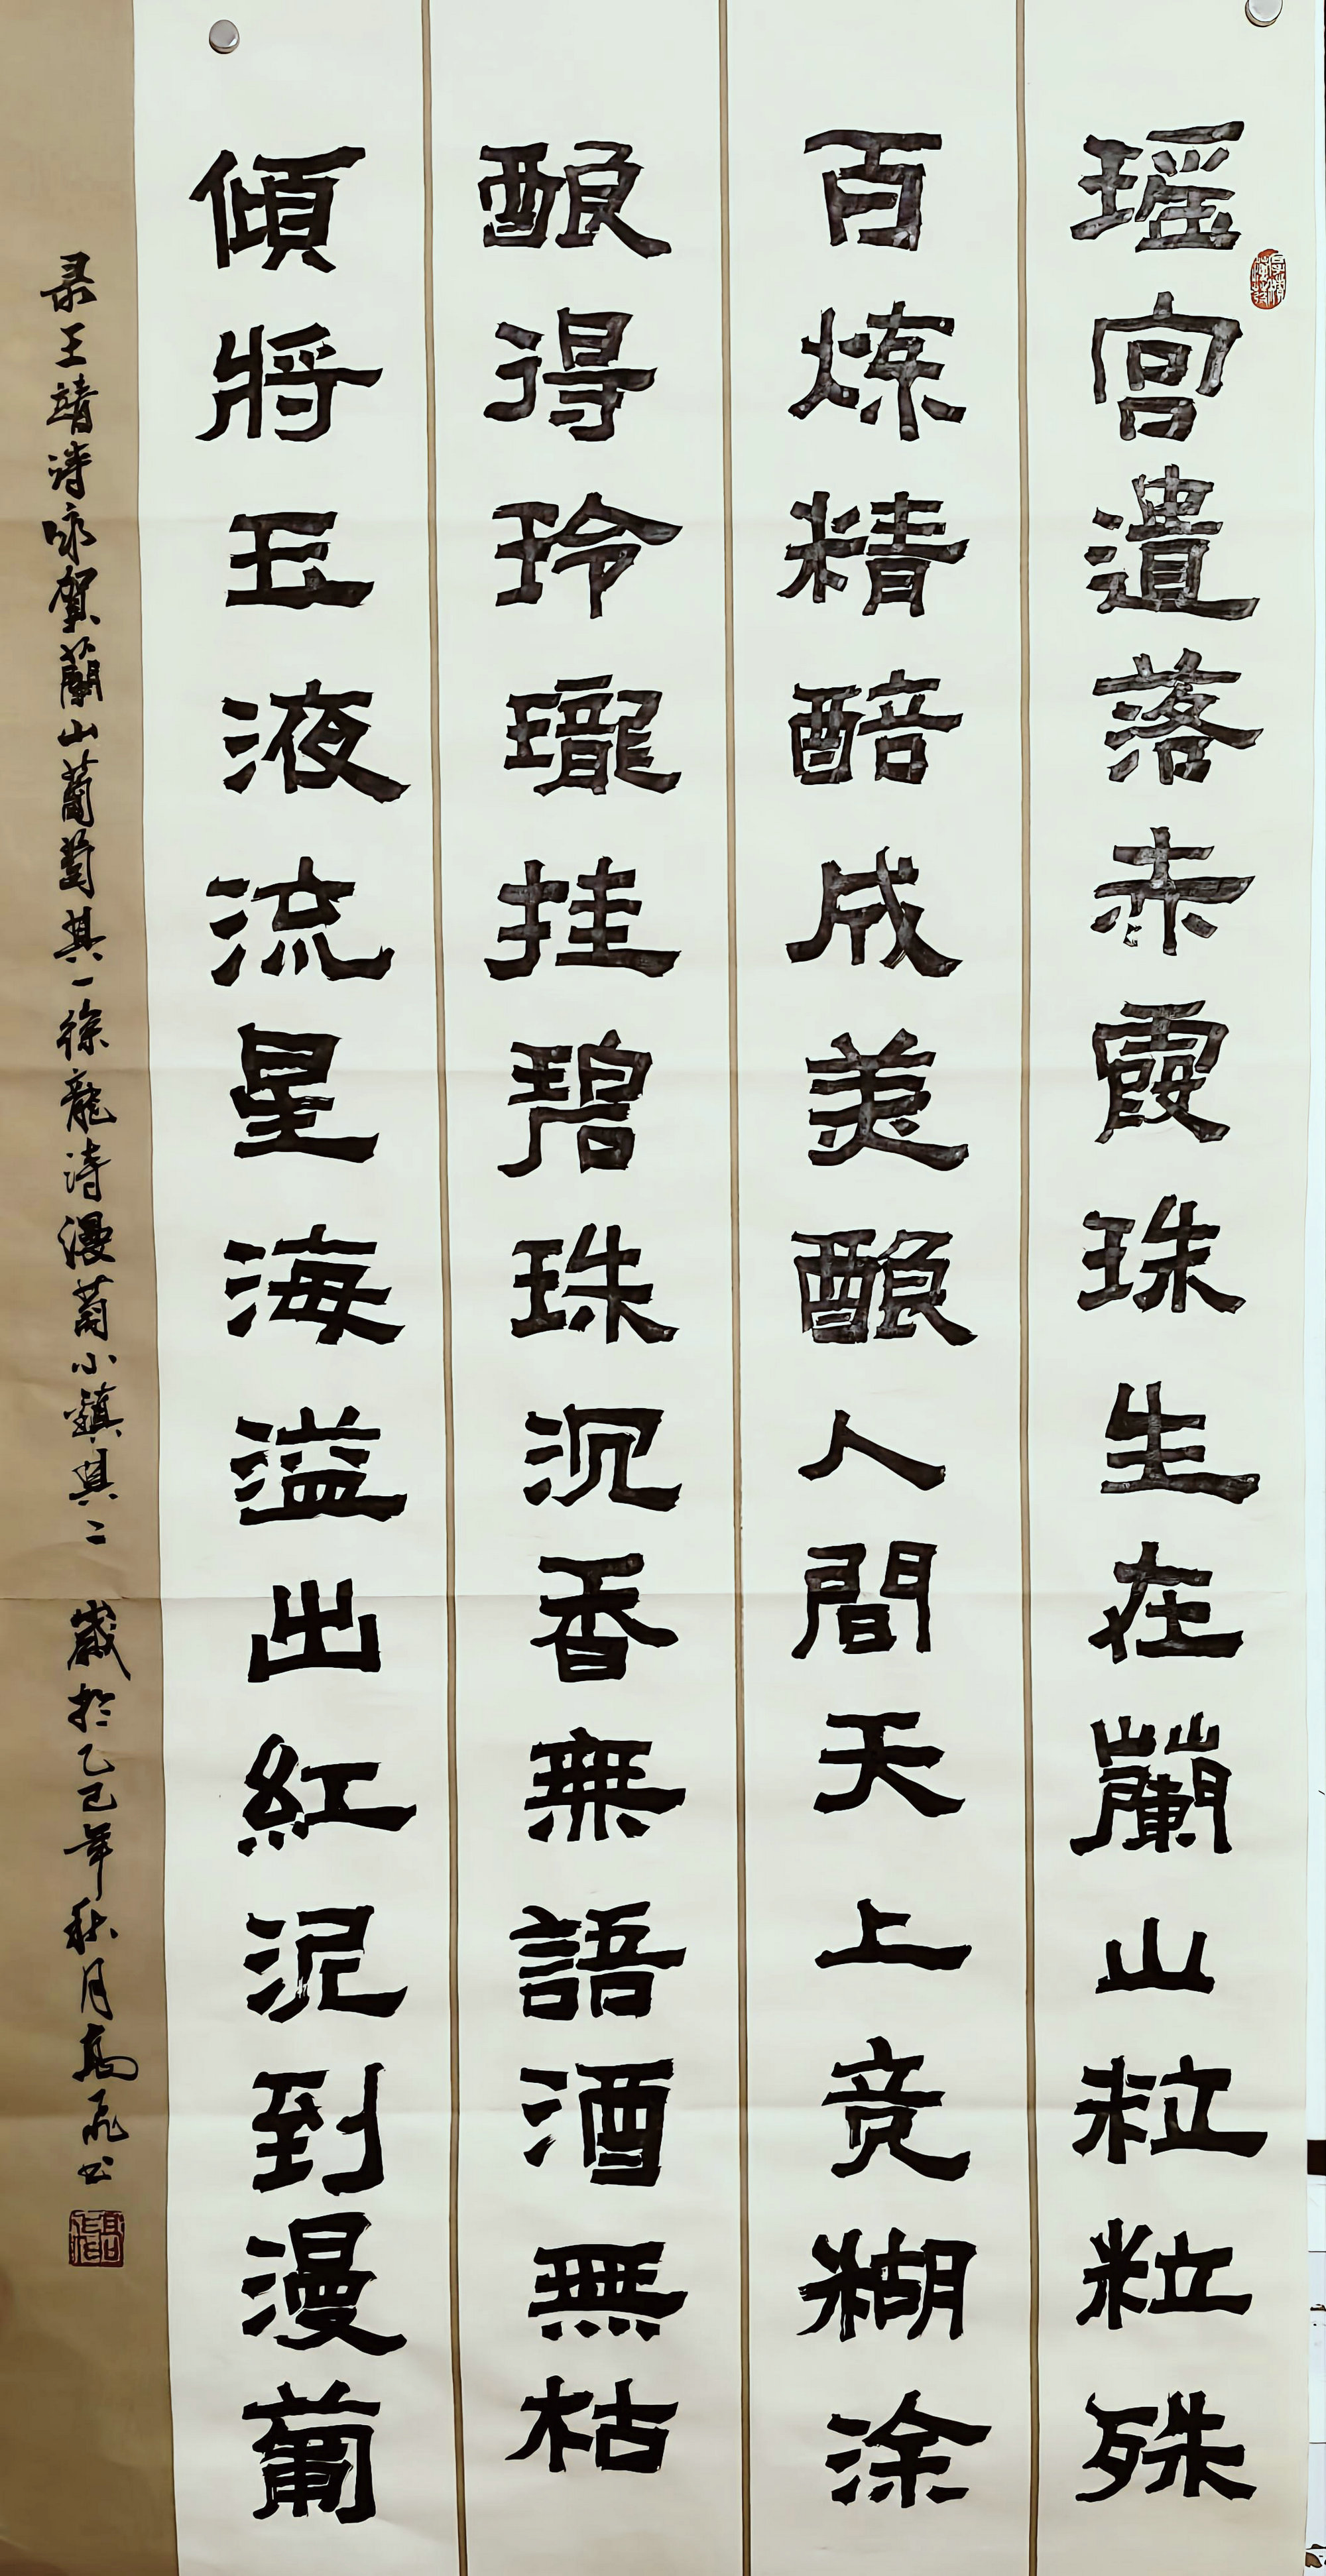 瑶宫遺落赤霞珠生在蘭山粒粒殊
百炼精醅成美酿人間天上竞糊涂
酿得玲瓏挂碧珠沉香無語酒無枯
傾將玉液流星海溢出紅泥到漫葡
录王靖诗咏贺蘭山葡萄其一徐龍诗漫葡小鎮其二 歲於乙巳年秋月高飛书